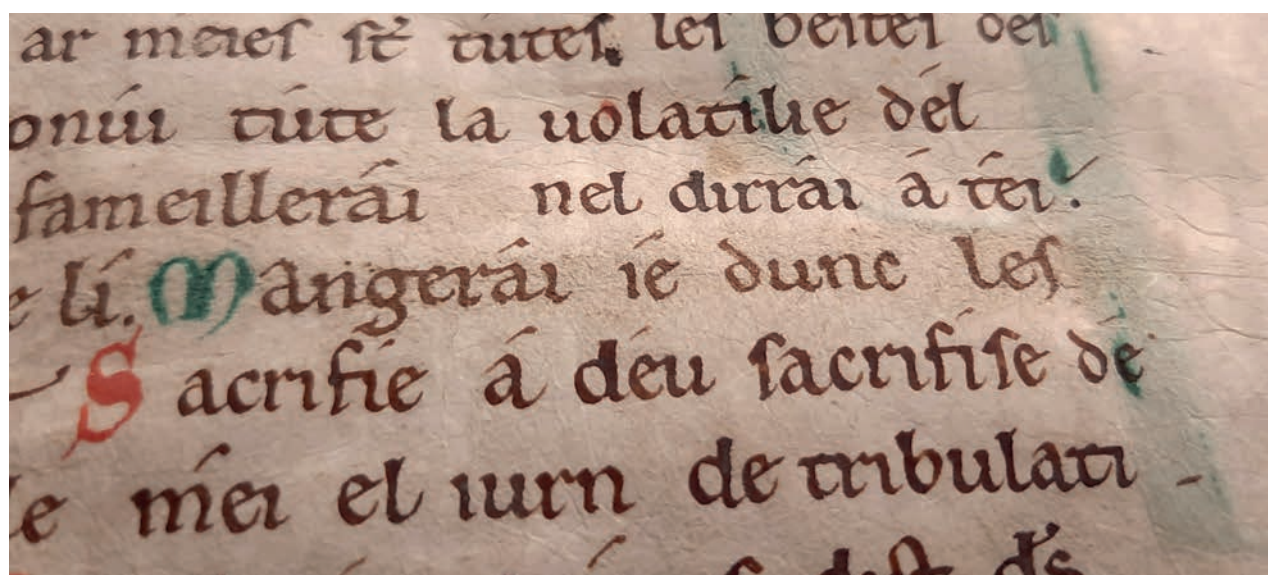 ar meieſ ſt̄ tuteſ. leſ beſteſ deſ
onúi túte la uolatílie dél
fameillerái nel dirrái á téi.
e lí. Mangerái ié dunc leſ
Sacrifíe á déu ſacrifiſe dé
le méi el iurn de tribulati-